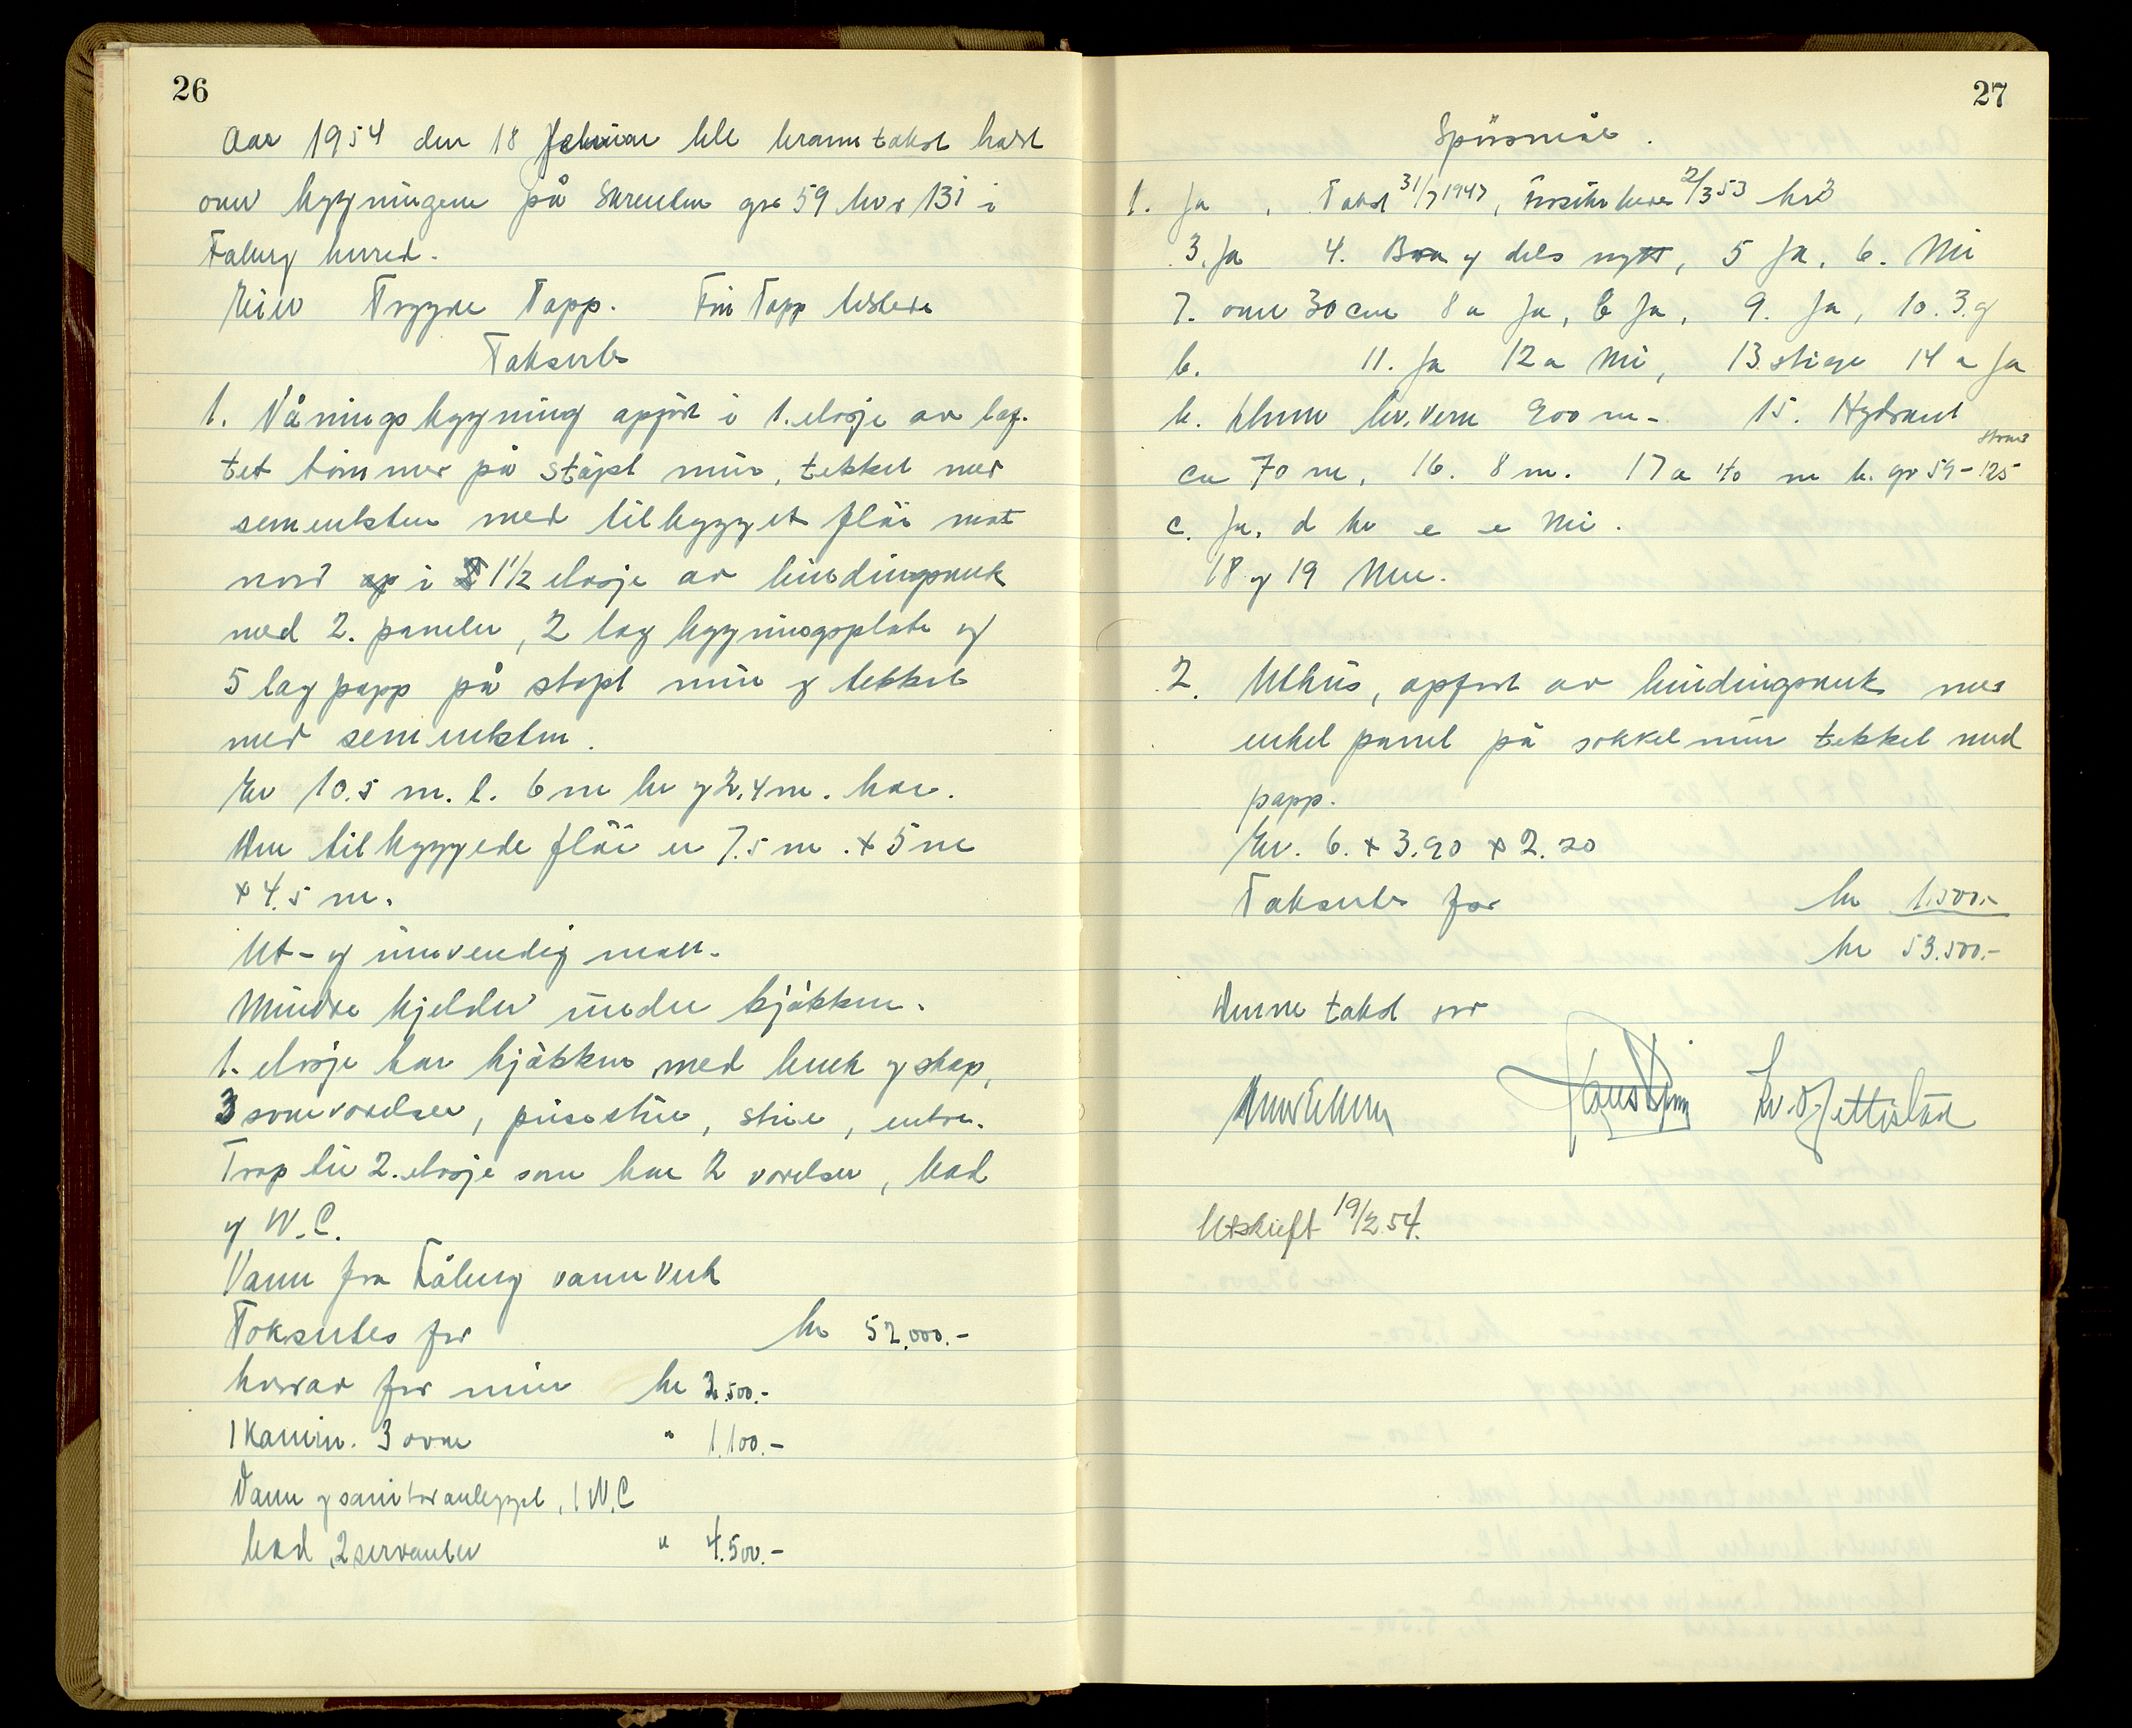 26
Aar 1954 den 18 Februar ble branntakst holdt
over bygningene på gnr 59 bnr 131 i
Faberg herred.
Eier Trygve Tapp. Fru Tapp tilstede
Takserte
1. Våningsbygning opført i 1. etasje av laf-
tet tømmer på støpt mur, tekket med
sementsten med tilbygget fløi mot
nord i 1½ etasje av bindingsverk
med 2. paneler, 2 lag bygningsplate og
5 lag papp på støpt mur og tekket
med sementsten.
Er 10.5 m. l. 6 m br og 2,4 m. høi.
Den tilbyggede fløi er 7.5 m. x 5 m
x 4.5 m.
Ut- og innvendig malt.
Mindre kjelder under kjøkken.
1. etasje har kjøkken med benk og skap,
3 soveværelser, peisestue, stue, entre.
Trap til 2. etasje som har 2 værelser, bad
og W.C.
Vann fra Fåberg vannverk
Takseres for kr 52.000.-
herav for mur kr 2.500.-
1 Kamin. 3 ovne " 1.100.-
Vann og sanitæranlegget, 1 W.C
bad, 2 servanter " 4.500.-
27
Spørsmål.
1. Ja, Takst 31/7 1947, 2/3 53
3. Ja 4. Bra og dels nytt, 5 Ja, 6. Nei
7. over 30 cm 8 a Ja, b Ja, 9. Ja, 10. 3. og
b. 11. Ja 12 a Nei, 13. stige 14 a Ja
b. br. vern 900 m- 15. Hydrant
ca 70 m, 16. 8 m. 17 a 40 m b. gr 59-125
c. Ja, d e Nei.
18 og 19 Nei.
2. Uthus, opført av bindingsverk med
enkel panel på sokkelmur tekket med
papp.
Er. 6. x 3.90 x 2.20
Takseres for kr 1.500.-
kr 53.500.-
Denne takst
Utskrift 19/2 54.